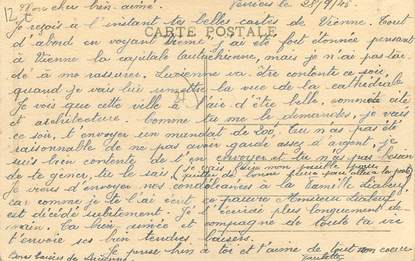 Mon cher bien-aimé. Verviers le 28/9/45
Je reçois à l'instant tes belles cartes de Vienne. Tout
CARTE POSTALE
d'abord en voyant Vienne j'ai été fort étonnée pensant
à Vienne la capitale autrichienne, mais je n'ai pas tar-
dé à me rassurer. Lucienne va être contente ce soir,
quand je vais lui remettre la vue de la cathédrale
Je vois que cette ville à l'air d'être belle, comme site
et architecture. Comme tu me le demandes, je vais
ce soir, t'envoyer un mandat de 200, tu n'as pas été
raisonnable de ne pas avoir gardé assez d'argent. Je
suis bien contente de l'en envoyer et tu n'as pas besoin
de te gêner, tu le sais
Je viens d'envoyer nos condoléances à la famille
car comme je te l'ai écrit, ce pauvre Monsieur
est décédé subitement. Je t'écrirai plus longuement de-
main. Ta bien aimée et compagne de toute la vie
t'envoie ses bien tendres baisers.
Bons baisers de Lucienne. Je pense bien à toi et t'aime de tout mon coeur